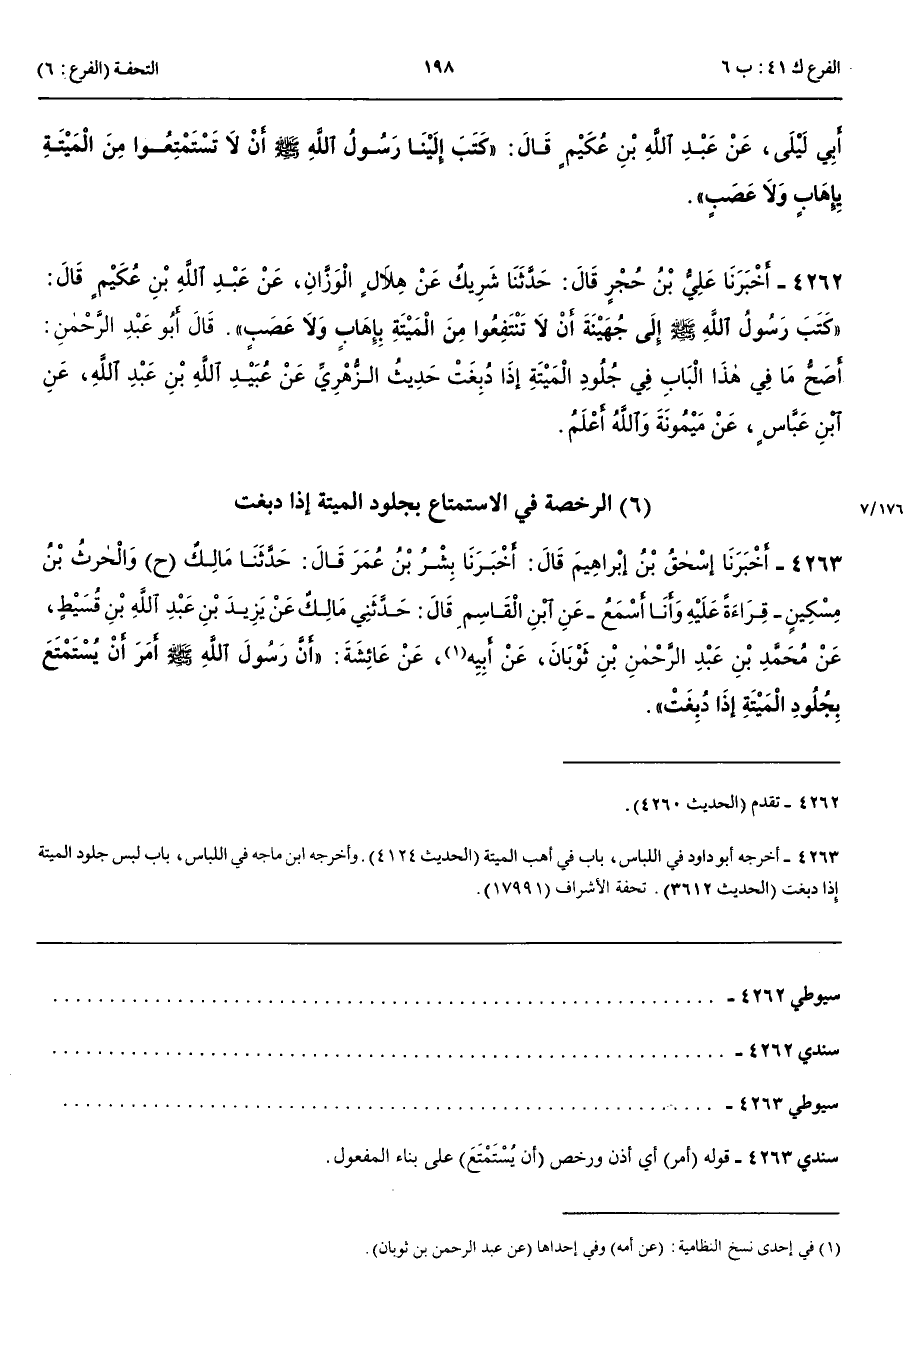 الفرع ك ٤١: ب ٦ ١٩٨ التحفة (الفرع: ٦)
أَبِي لَيْلَى، عَنْ عَبْدِ ٱللَّهِ بْنِ عُكَيْمٍ قَالَ: «كَتَبَ إِلَيْنَا رَسُولُ ٱللَّهِ ﷺ أَنْ لَا تَسْتَمْتِعُوا مِنَ الْمَيْتَةِ
بِإِهَابٍ وَلَا عَصَبٍ».
٤٢٦٢ ـ أَخْبَرَنَا عَلِيُّ بْنُ حُجْرٍ قَالَ: حَدَّثَنَا شَرِيكٌ عَنْ هِلَالٍ الْوَزَّانِ، عَنْ عَبْدِ ٱللَّهِ بْنِ عُكَيْمٍ قَالَ:
«كَتَبَ رَسُولُ ٱللَّهِ ﷺ إِلَى جُهَيْنَةَ أَنْ لَا تَنْتَفِعُوا مِنَ الْمَيْتَةِ بِإِهَابٍ وَلَا عَصَبٍ». قَالَ أَبُو عَبْدِ الرَّحْمٰنِ:
أَصَحُّ مَا فِي هٰذَا الْبَابِ فِي جُلُودِ الْمَيْتَةِ إِذَا دُبِغَتْ حَدِيثُ الزُّهْرِيِّ عَنْ عُبَيْدِ ٱللَّهِ بْنِ عَبْدِ ٱللَّهِ، عَنِ
ٱبْنِ عَبَّاسٍ، عَنْ مَيْمُونَةَ وَٱللَّهُ أَعْلَمُ.
(٦) الرخصة في الاستمتاع بجلود الميتة إذا دبغت
٧/١٧٦
٤٢٦٣ ـ أَخْبَرَنَا إِسْحٰقُ بْنُ إِبْرَاهِيمَ قَالَ: أَخْبَرَنَا بِشْرُ بْنُ عُمَرَ قَالَ: حَدَّثَنَا مَالِكٌ (ح) وَالْحٰرِثُ بْنُ
مِسْكِينٍ ـ قِرَاءَةً عَلَيْهِ وَأَنَا أَسْمَعُ ـ عَنِ ٱبْنِ الْقَاسِمِ قَالَ: حَدَّثَنِي مَالِكٌ عَنْ يَزِيدَ بْنِ عَبْدِ ٱللَّهِ بْنِ قُسَيْطٍ،
عَنْ مُحَمَّدِ بْنِ عَبْدِ الرَّحْمٰنِ بْنِ ثَوْبَانَ، عَنْ أَبِيهِ(١)، عَنْ عَائِشَةَ: «أَنَّ رَسُولَ ٱللَّهِ ﷺ أَمَرَ أَنْ يُسْتَمْتَعَ
بِجُلُودِ الْمَيْتَةِ إِذَا دُبِغَتْ».
٤٢٦٢ ـ تقدم (الحديث ٤٢٦٠).
٤٢٦٣ ـ أخرجه أبو داود في اللباس، باب في أهب الميتة (الحديث ٤١٢٤). وأخرجه ابن ماجه في اللباس، باب لبس جلود الميتة
إذا دبغت (الحديث ٣٦١٢). تحفة الأشراف (١٧٩٩١).
سيوطي ٤٢٦٢ ـ ............................................................
سندي ٤٢٦٢ ـ ............................................................
سيوطي ٤٢٦٣ ـ ............................................................
سندي ٤٢٦٣ ـ قوله (أمر) أي أذن ورخص (أن يُسْتَمْتَعَ) على بناء المفعول.
(١) في إحدى نسخ النظامية: (عن أمه) وفي إحداها (عن عبد الرحمن بن ثوبان).